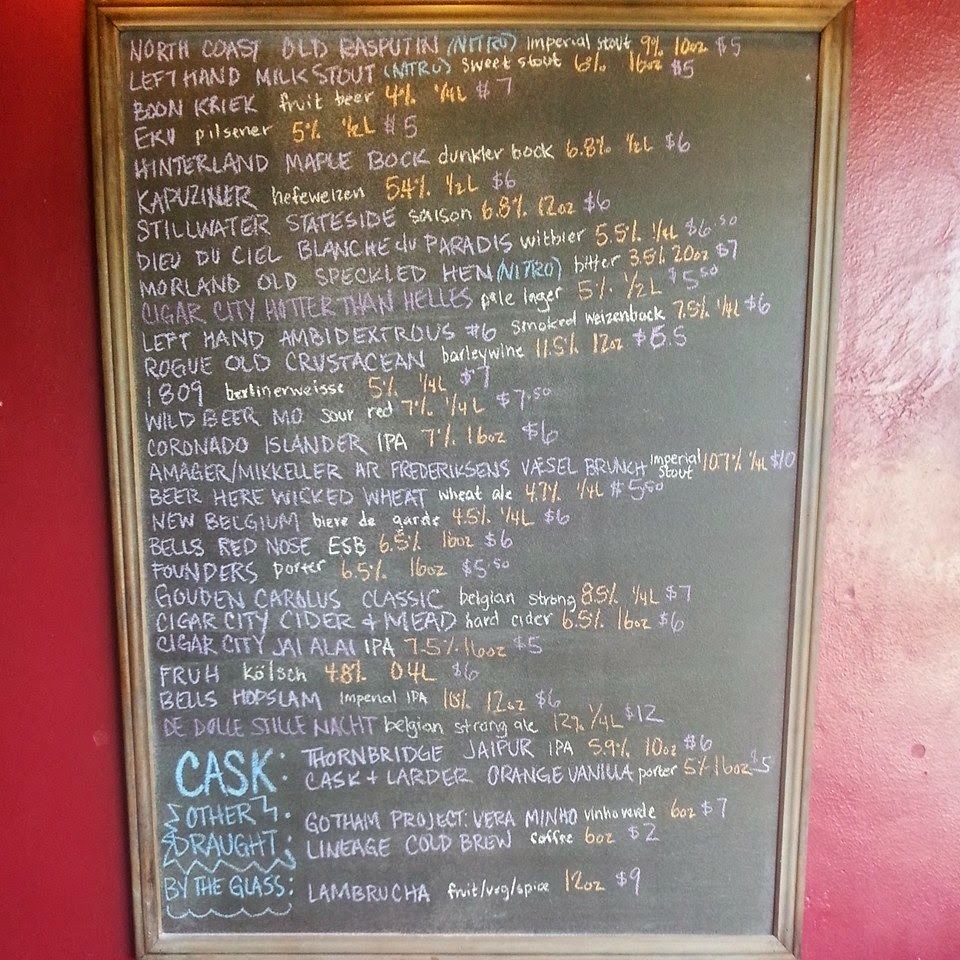 NORTH COAST OLD RASPUTIN (NITRO) imperial stout 9% 10oz $5
LEFT HAND MILK STOUT (NITRO) sweet stout 6% 16oz $5
BOON KRIEK fruit beer 4% 1/4L $7
EKU pilsener 5% 1/2L $5
HINTERLAND MAPLE BOCK dunkler bock 6.8% 1/2L $6
KAPUZINER hefeweizen 5.4% 1/2L $6
STILLWATER STATESIDE saison 6.8% 12oz $6
DIEU DU CIEL BLANCHE du PARADIS witbier 5.5% 1/4L $6.50
MORLAND OLD SPECKLED HEN (NITRO) bitter 3.5% 20oz $7
CIGAR CITY HOTTER THAN HELLES pale lager 5% 1/2L $5.50
LEFT HAND AMBIDEXTROUS #6 smoked weizenbock 7.5% 1/4L $6
ROGUE OLD CRUSTACEAN barleywine 11.5% 12oz $6.5
1809 berlinerweisse 5% 1/4L $7
WILD BEER MO sour red 7% 1/4L $7.50
CORONADO ISLANDER IPA 7% 16oz $6
AMAGER/MIKKELLER HR FREDERIKSENS VÆSEL BRUNCH imperial stout 10.7% 1/4L $10
BEER HERE WICKED WHEAT wheat ale 4.7% 1/4L $5.50
NEW BELGIUM biere de garde 4.5% 1/4L $6
BELLS RED NOSE ESB 6.5% 16oz $6
FOUNDERS porter 6.5% 16oz $5.50
GOUDEN CAROLUS CLASSIC belgian strong 8.5% 1/4L $7
CIGAR CITY CIDER & MEAD hard cider 6.5% 16oz $6
CIGAR CITY JAI ALAI IPA 7.5% 16oz $5
FRUH kölsch 4.8% 0.4L $6
BELLS HOPSLAM Imperial IPA 10% 12oz $6
DE DOLLE STILLE NACHT belgian strong ale 12% 1/4L $12
CASK: THORNBRIDGE JAIPUR IPA 5.9% 10oz $6
CASK + LARDER ORANGE VANILLA porter 5% 16oz $5
OTHER DRAUGHT: GOTHAM PROJECT: VERA MINHO vinho verde 6oz $7
LINEAGE COLD BREW coffee 6oz $2
BY THE GLASS: LAMBRUCHA fruit/veg/spice 12oz $9